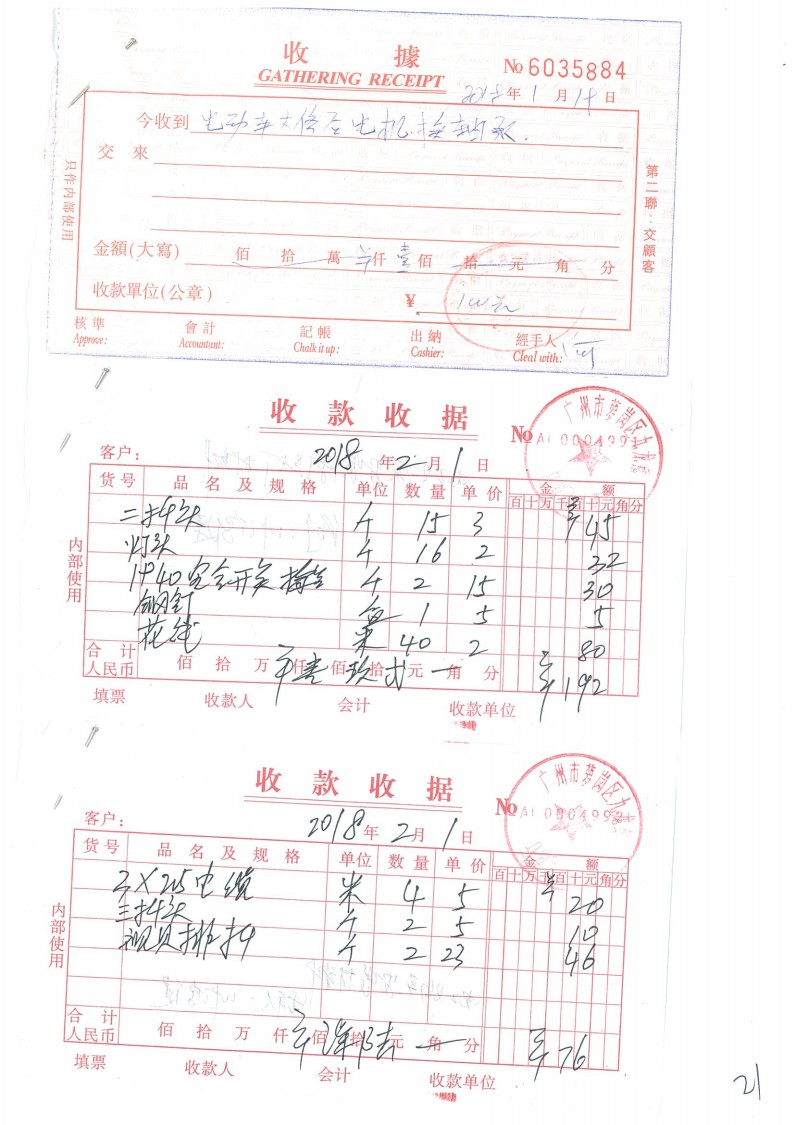 收 據
GATHERING RECEIPT
No 6035884
2018年 1 月 14 日
今收到 电动车大修 电机 换轴承.
交 來
金額(大寫) 佰 拾 萬 仟 壹 佰 拾 元 角 分
收款單位(公章) ¥ 100元
核 準 會 計 記 帳 出 納 經手人
Approve: Accountant: Chalk it up: Cashier: Cleal with:
只作内部使用
第二聯:交顧客
收 款 收 据
No A1 000499
广州市萝岗区九
客户: 2018 年 2 月 1 日
货 号 品 名 及 规 格 单位 数 量 单 价 金 额
百 十 万 千 百 十 元 角 分
二扦头 个 15 3 45
灯头 个 16 2 32
1P40空气开关 个 2 15 30
钢钉 盒 1 5 5
花线 米 40 2 80
合 计
人民币 佰 拾 万 仟 壹 佰 玖 拾 贰 元 角 分 192
填票 收款人 会计 收款单位
内部使用
收 款 收 据
No A1 0004992
广州市萝岗区九
客户: 2018 年 2 月 1 日
货 号 品 名 及 规 格 单位 数 量 单 价 金 额
百 十 万 千 百 十 元 角 分
3×2.5电缆 米 4 5 20
三扦头 个 2 5 10
排扦 个 2 23 46
合 计
人民币 佰 拾 万 仟 佰 柒 拾 陆 元 角 分 76
填票 收款人 会计 收款单位
内部使用
21